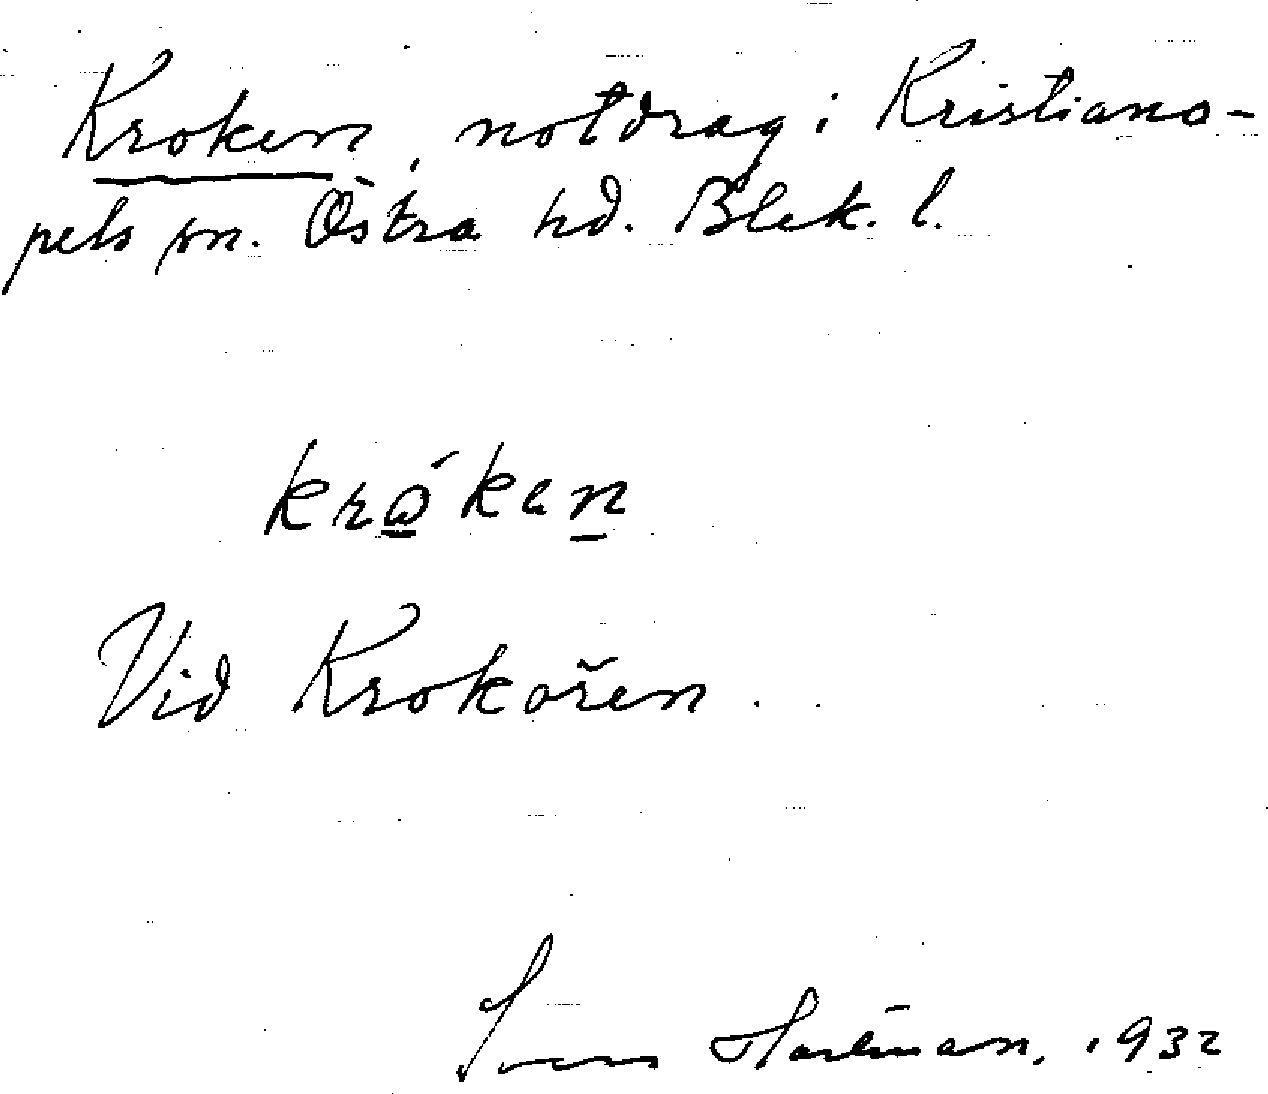 Kroken, notdrag i Kristiano-
pels sn. Östra hd. Blek. l.
Vid Krokören.
Sven Hartman, 1932